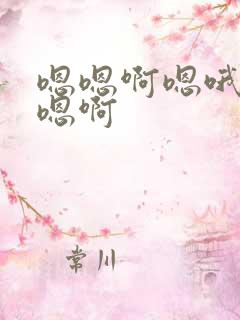 嗯嗯啊嗯哦
嗯啊
常川